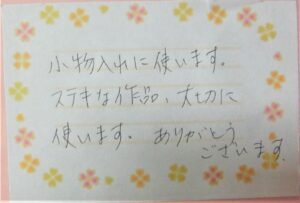 小物入れに使います。
ステキな作品、大切に
使います。 ありがとう
ございます.